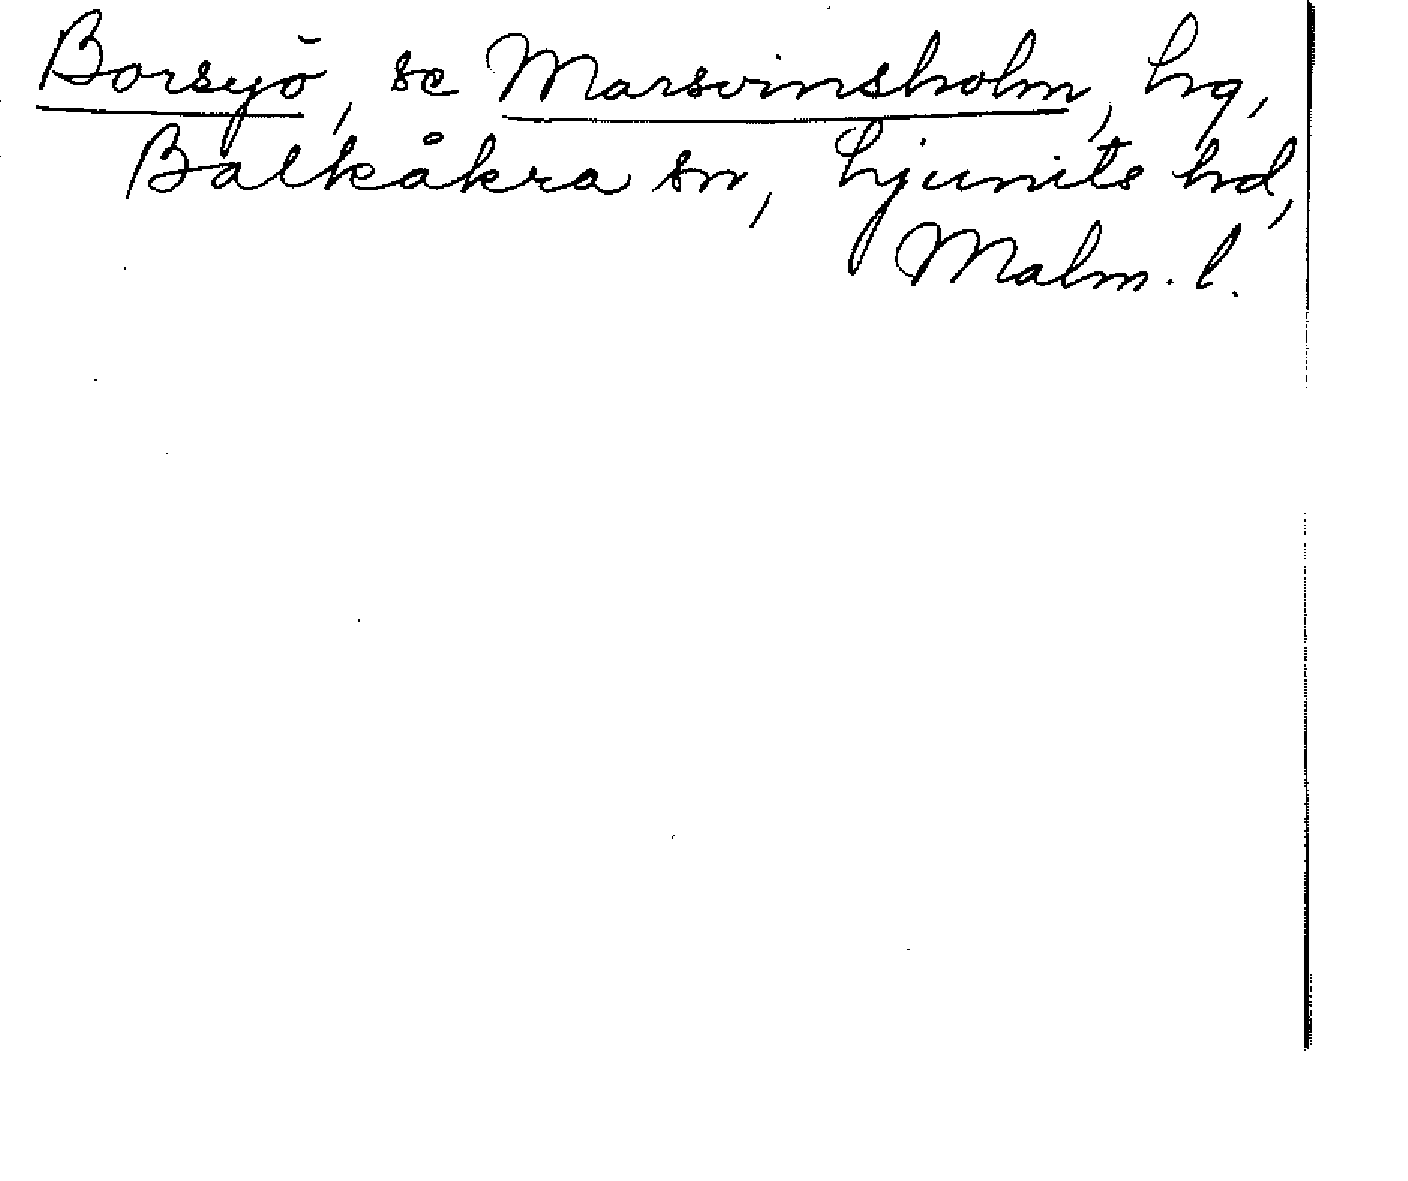 Borsyö, se Marsvinsholm, hg,
Balkåkra sn, Ljunits hd,
Malm. l.